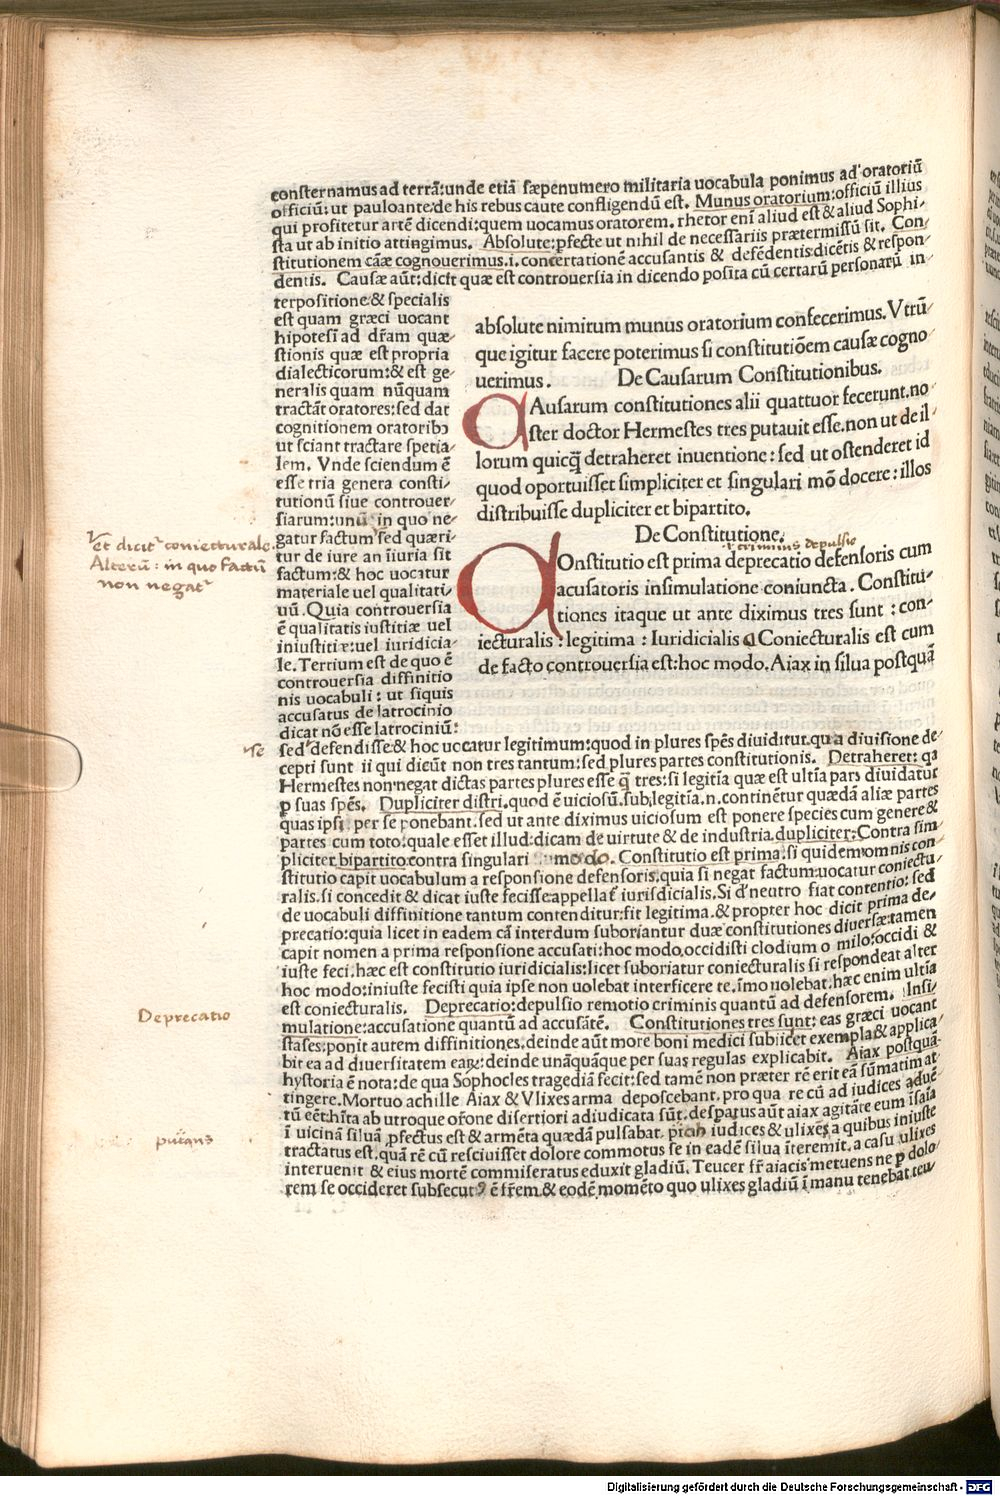 consternamus ad terrã:unde etiã sæpenumero militaria uocabula ponimus ad oratoriũ
officiũ:ut pauloante:de his rebus caute confligendũ est. Munus oratorium:officiũ illius
qui profitetur artẽ dicendi:quem uocamus oratorem. rhetor enĩ aliud est & aliud Sophi-
sta ut ab initio attingimus. Absolute:pfecte ut nihil de necessariis prætermissũ sit. Con-
stitutionem cãæ cognouerimus.i.concertationẽ accusantis & defẽdentis:dicẽtis & respon-
dentis. Causæ aũt:dicit quæ est controuersia in dicendo posita cũ certarũ personarũ in
terpositione:& specialis
est quam græci uocant
hipotesĩ ad dr̃am quæ-
stionis quæ est propria
dialecticorum:& est ge-
neralis quam nũquam
tractãt oratores:sed dat
cognitionem oratoribꝫ
ut sciant tractare spetia-
lem. Vnde sciendum ẽ
esse tria genera consti-
tutionũ siue controuer-
siarum:unũ in quo ne-
gatur factum sed quæri-
tur de iure an ĩiuria sit
factum:& hoc uocatur
materiale uel qualitati-
uũ. Quia controuersia
ẽ qualitatis iustitiæ uel
iniustitiæ:uel iuridicia-
le. Tertium est de quo ẽ
controuersia diffinitio
nis uocabuli : ut siquis
accusatus de latrocinio
dicat nõ esse latrociniũ:
absolute nimirum munus oratorium confecerimus. Vtrũ-
que igitur facere poterimus si constitutiõem causæ cogno
uerimus. De Causarum Constitutionibus.
CAusarum constitutiones alii quattuor fecerunt.no-
ster doctor Hermestes tres putauit esse.non ut de il-
lorum quicq̃ detraheret inuentione : sed ut ostenderet id
quod oportuisset simpliciter et singulari mõ docere : illos
distribuisse dupliciter et bipartito.
De Constitutione.
.i. criminis depulsio
COnstitutio est prima deprecatio defensoris cum
acusatoris insimulatione coniuncta. Constitu-
tiones itaque ut ante diximus tres sunt : con-
iecturalis : legitima : Iuridicialis Coniecturalis est cum
de facto controuersia est:hoc modo. Aiax in silua postquã
et dicit~ coniecturale.
Alterũ : in quo factũ
non negat~
se
sed defendisse:& hoc uocatur legitimum:quod in plures spẽs diuiditur.qu a diuisione de-
cepti sunt ii qui dicũt non tres tantum:sed plures partes constitutionis. Detraheret: qa
Hermestes non negat dictas partes plures esse q̃ tres:si legitĩa quæ est ultĩa pars diuidatur
ꝑ suas spẽs. Dupliciter distri.quod ẽ uiciosũ.sub;legitĩa.n.continẽtur quædã aliæ partes
quas ipsi per se ponebant.sed ut ante diximus uiciosum est ponere species cum genere &
partes cum toto:quale esset illud:dicam de uirtute & de industria.dupliciter:Contra sim-
pliciter.bipartito:contra singulari modo. Constitutio est prima.si quidem omnis con-
stitutio capit uocabulum a responsione defensoris.quia si negat factum:uocatur coniectu-
ralis.si concedit & dicat iuste fecisse:appellat iurisdicialis.Si d'neutro fiat contentio: sed
de uocabuli diffinitione tantum contenditur:fit legitima.& propter hoc dicit prima de-
precatio:quia licet in eadem cã interdum suboriantur duæ constitutiones diuersæ:tamen
capit nomen a prima responsione accusati:hoc modo.occidisti clodium o milo:occidi &
iuste feci.hæc est constitutio iuridicialis:licet suboriatur coniecturalis si respondeat alter
hoc modo:iniuste fecisti quia ipse non uolebat interficere te.ĩmo uolebat.hæc enim ultĩa
est coniecturalis. Deprecatio:depulsio remotio criminis quantũ ad defensorem. Insi-
mulatione:accusatione quantũ ad accusãtẽ. Constitutiones tres sunt: eas græci uocant
stases:ponit autem diffinitiones.deinde aũt more boni medici subiicet exempla & applica-
bit ea ad diuersitatem eaꝝ:deinde unãquãque per suas regulas explicabit. Aiax postquã-
hystoria ẽ nota:de qua Sophocles tragediã fecit:sed tamẽ non præter rẽ erit eã sũmatim at
tingere.Mortuo achille Aiax & Vlixes arma deposcebant.pro qua re cũ ad iudices aduẽ-
tũ eẽt:hĩta ab utroque or̃one disertiori adiudicata sũt.desparus aũt aiax agitãte eum ĩsaĩa
ĩ uicinã siluã ꝓfectus est & armẽta quædã pulsabat. iudices & ulixẽs a quibus iniuste
tractatus est.quã rẽ cũ resciuisset dolore commotus se in eadẽ silua ĩteremit.a casu ulixes
interuenit & eius mortẽ commiseratus eduxit gladiũ. Teucer fr̃ aiacis metuens ne ꝑ dolo-
rem se occideret subsecutꝰ ẽ fr̃em.& eodẽ momẽto quo ulixes gladiũ ĩ manu tenebat teu-
Deprecatio
putãns
Digitalisierung gefördert durch die Deutsche Forschungsgemeinschaft - DFG